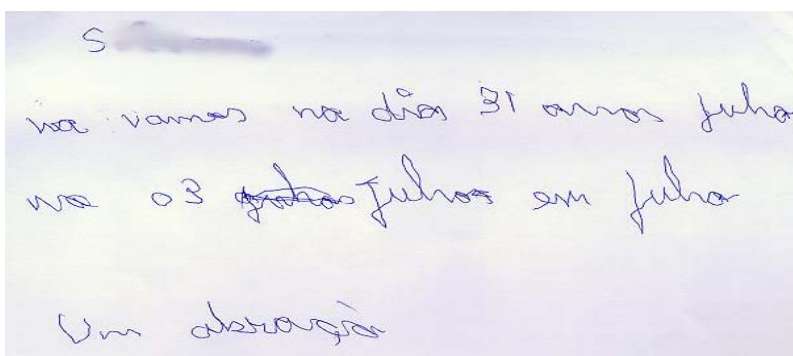 S
na vamos na dia 31 anos julho
na 03 julhos em julho
Um abração